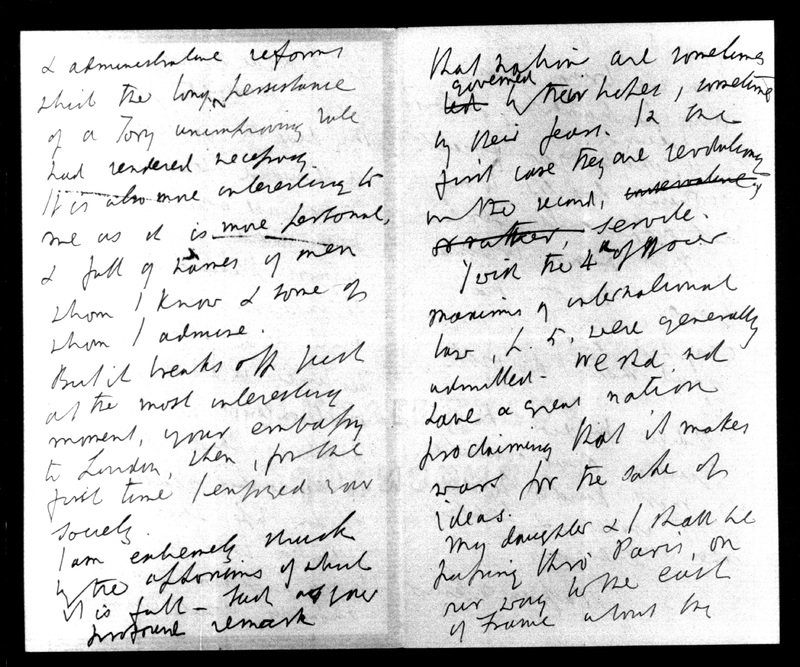 & administrative reforms
which the long persistence
of a Tory unimproving rule
had rendered necessary.
It is also more interesting to
me as it is more personal,
& full of names of men
whom I know & some of
whom I admire.
But it breaks off just
at the most interesting
moment, your embassy
to London, when, for the
first time I enjoyed your
society.
I am extremely struck
by the aphorisms of which
it is full – such as your
profound remark
that nations are sometimes
governed
led by their hopes, sometimes
by their fears. In the
first case they are revolutionary
in the second,
or rather, servile.
I wish the 4th of your
maxims of international
law, p. 5, were generally
admitted. We shd not
have a great nation
proclaiming that it makes
wars for the sake of
ideas.
My daughter & I shall be
passing thro Paris, on
our way to the east
of France about the